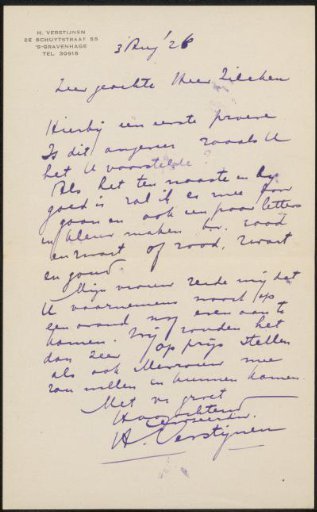 H. VERSTIJNEN
2E SCHUYTSTRAAT 55
'S-GRAVENHAGE
TEL. 30915
3 Aug' 26
Zeer geachte Heer Zilcken
Hierbij een eerste proeve
Is dit ongeveer zooals U
het U voorstelde?
Als het ten naaste en bij
goed is zal ik er mee door
gaan en ook een paar letters
in kleur maken bv. rood
en zwart of rood, zwart
en goud.
Mijn vrouw zeide mij dat
U voornemens was op
een avond nog even aan te
komen. Wij zouden het
dan zeer op prijs stellen
als ook Mevrouw mee
zou willen en kunnen komen.
Met vr groet
Hoogachtend
H. Verstijnen